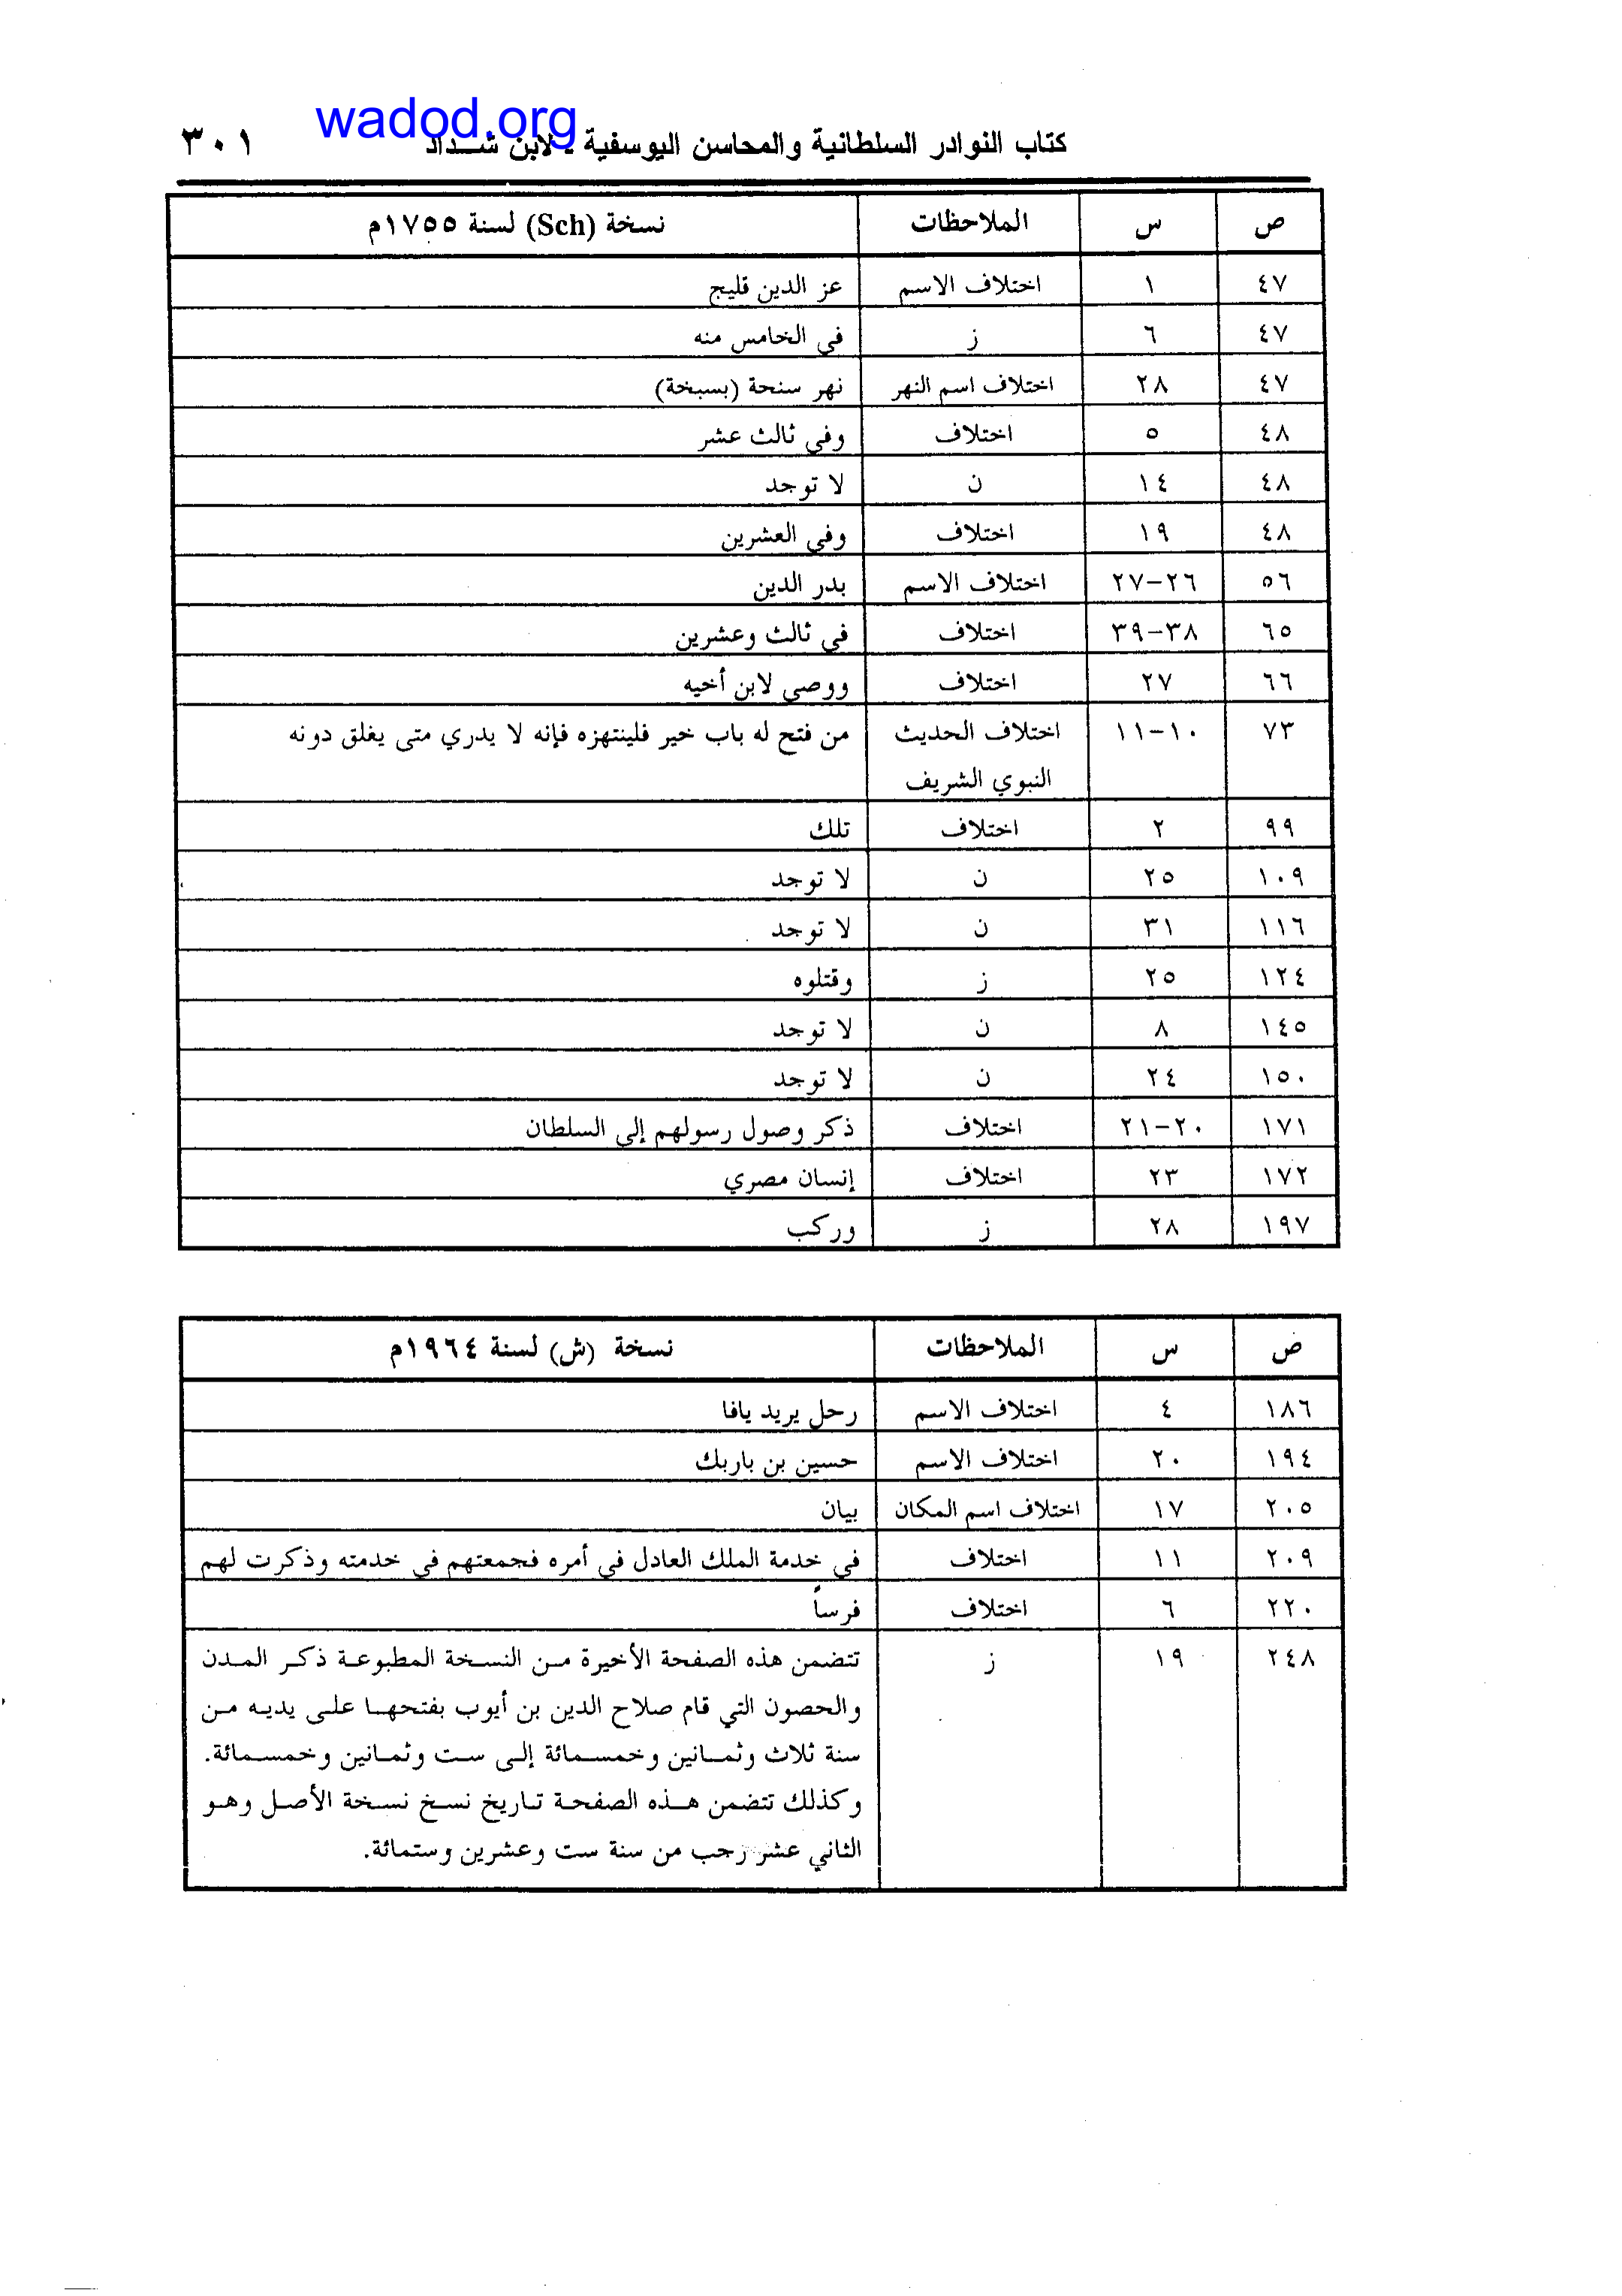 wadod.org
كتاب النوادر السلطانية والمحاسن اليوسفية - لابن شـداد ٣٠١
ص س الملاحظات نسخة (Sch) لسنة ١٧٥٥م
٤٧ ١ اختلاف الاسم عز الدين قليج
٤٧ ٦ ز في الخامس منه
٤٧ ٢٨ اختلاف اسم النهر نهر سنحة (بسبخة)
٤٨ ٥ اختلاف وفي ثالث عشر
٤٨ ١٤ ن لا توجد
٤٨ ١٩ اختلاف وفي العشرين
٥٦ ٢٦-٢٧ اختلاف الاسم بدر الدين
٦٥ ٣٨-٣٩ اختلاف في ثالث وعشرين
٦٦ ٢٧ اختلاف ووصى لابن أخيه
٧٣ ١٠-١١ اختلاف الحديث من فتح له باب خير فلينتهزه فإنه لا يدري متى يغلق دونه
النبوي الشريف
٩٩ ٢ اختلاف تلك
١٠٩ ٢٥ ن لا توجد
١١٦ ٣١ ن لا توجد
١٢٤ ٢٥ ز وقتلوه
١٤٥ ٨ ن لا توجد
١٥٠ ٢٤ ن لا توجد
١٧١ ٢٠-٢١ اختلاف ذكر وصول رسولهم إلى السلطان
١٧٢ ٢٣ اختلاف إنسان مصري
١٩٧ ٢٨ ز وركب
ص س الملاحظات نسخة (ش) لسنة ١٩٦٤م
١٨٦ ٤ اختلاف الاسم رحل يريد يافا
١٩٤ ٢٠ اختلاف الاسم حسين بن باربك
٢٠٥ ١٧ اختلاف اسم المكان بيان
٢٠٩ ١١ اختلاف في خدمة الملك العادل في أمره فجمعتهم في خدمته وذكرت لهم
٢٢٠ ٦ اختلاف فرساً
٢٤٨ ١٩ ز تتضمن هذه الصفحة الأخيرة من النسخة المطبوعة ذكر المدن
والحصون التي قام صلاح الدين بن أيوب بفتحها على يديه من
سنة ثلاث وثمانين وخمسمائة إلى ست وثمانين وخمسمائة.
وكذلك تتضمن هذه الصفحة تاريخ نسخ نسخة الأصل وهو
الثاني عشر رجب من سنة ست وعشرين وستمائة.